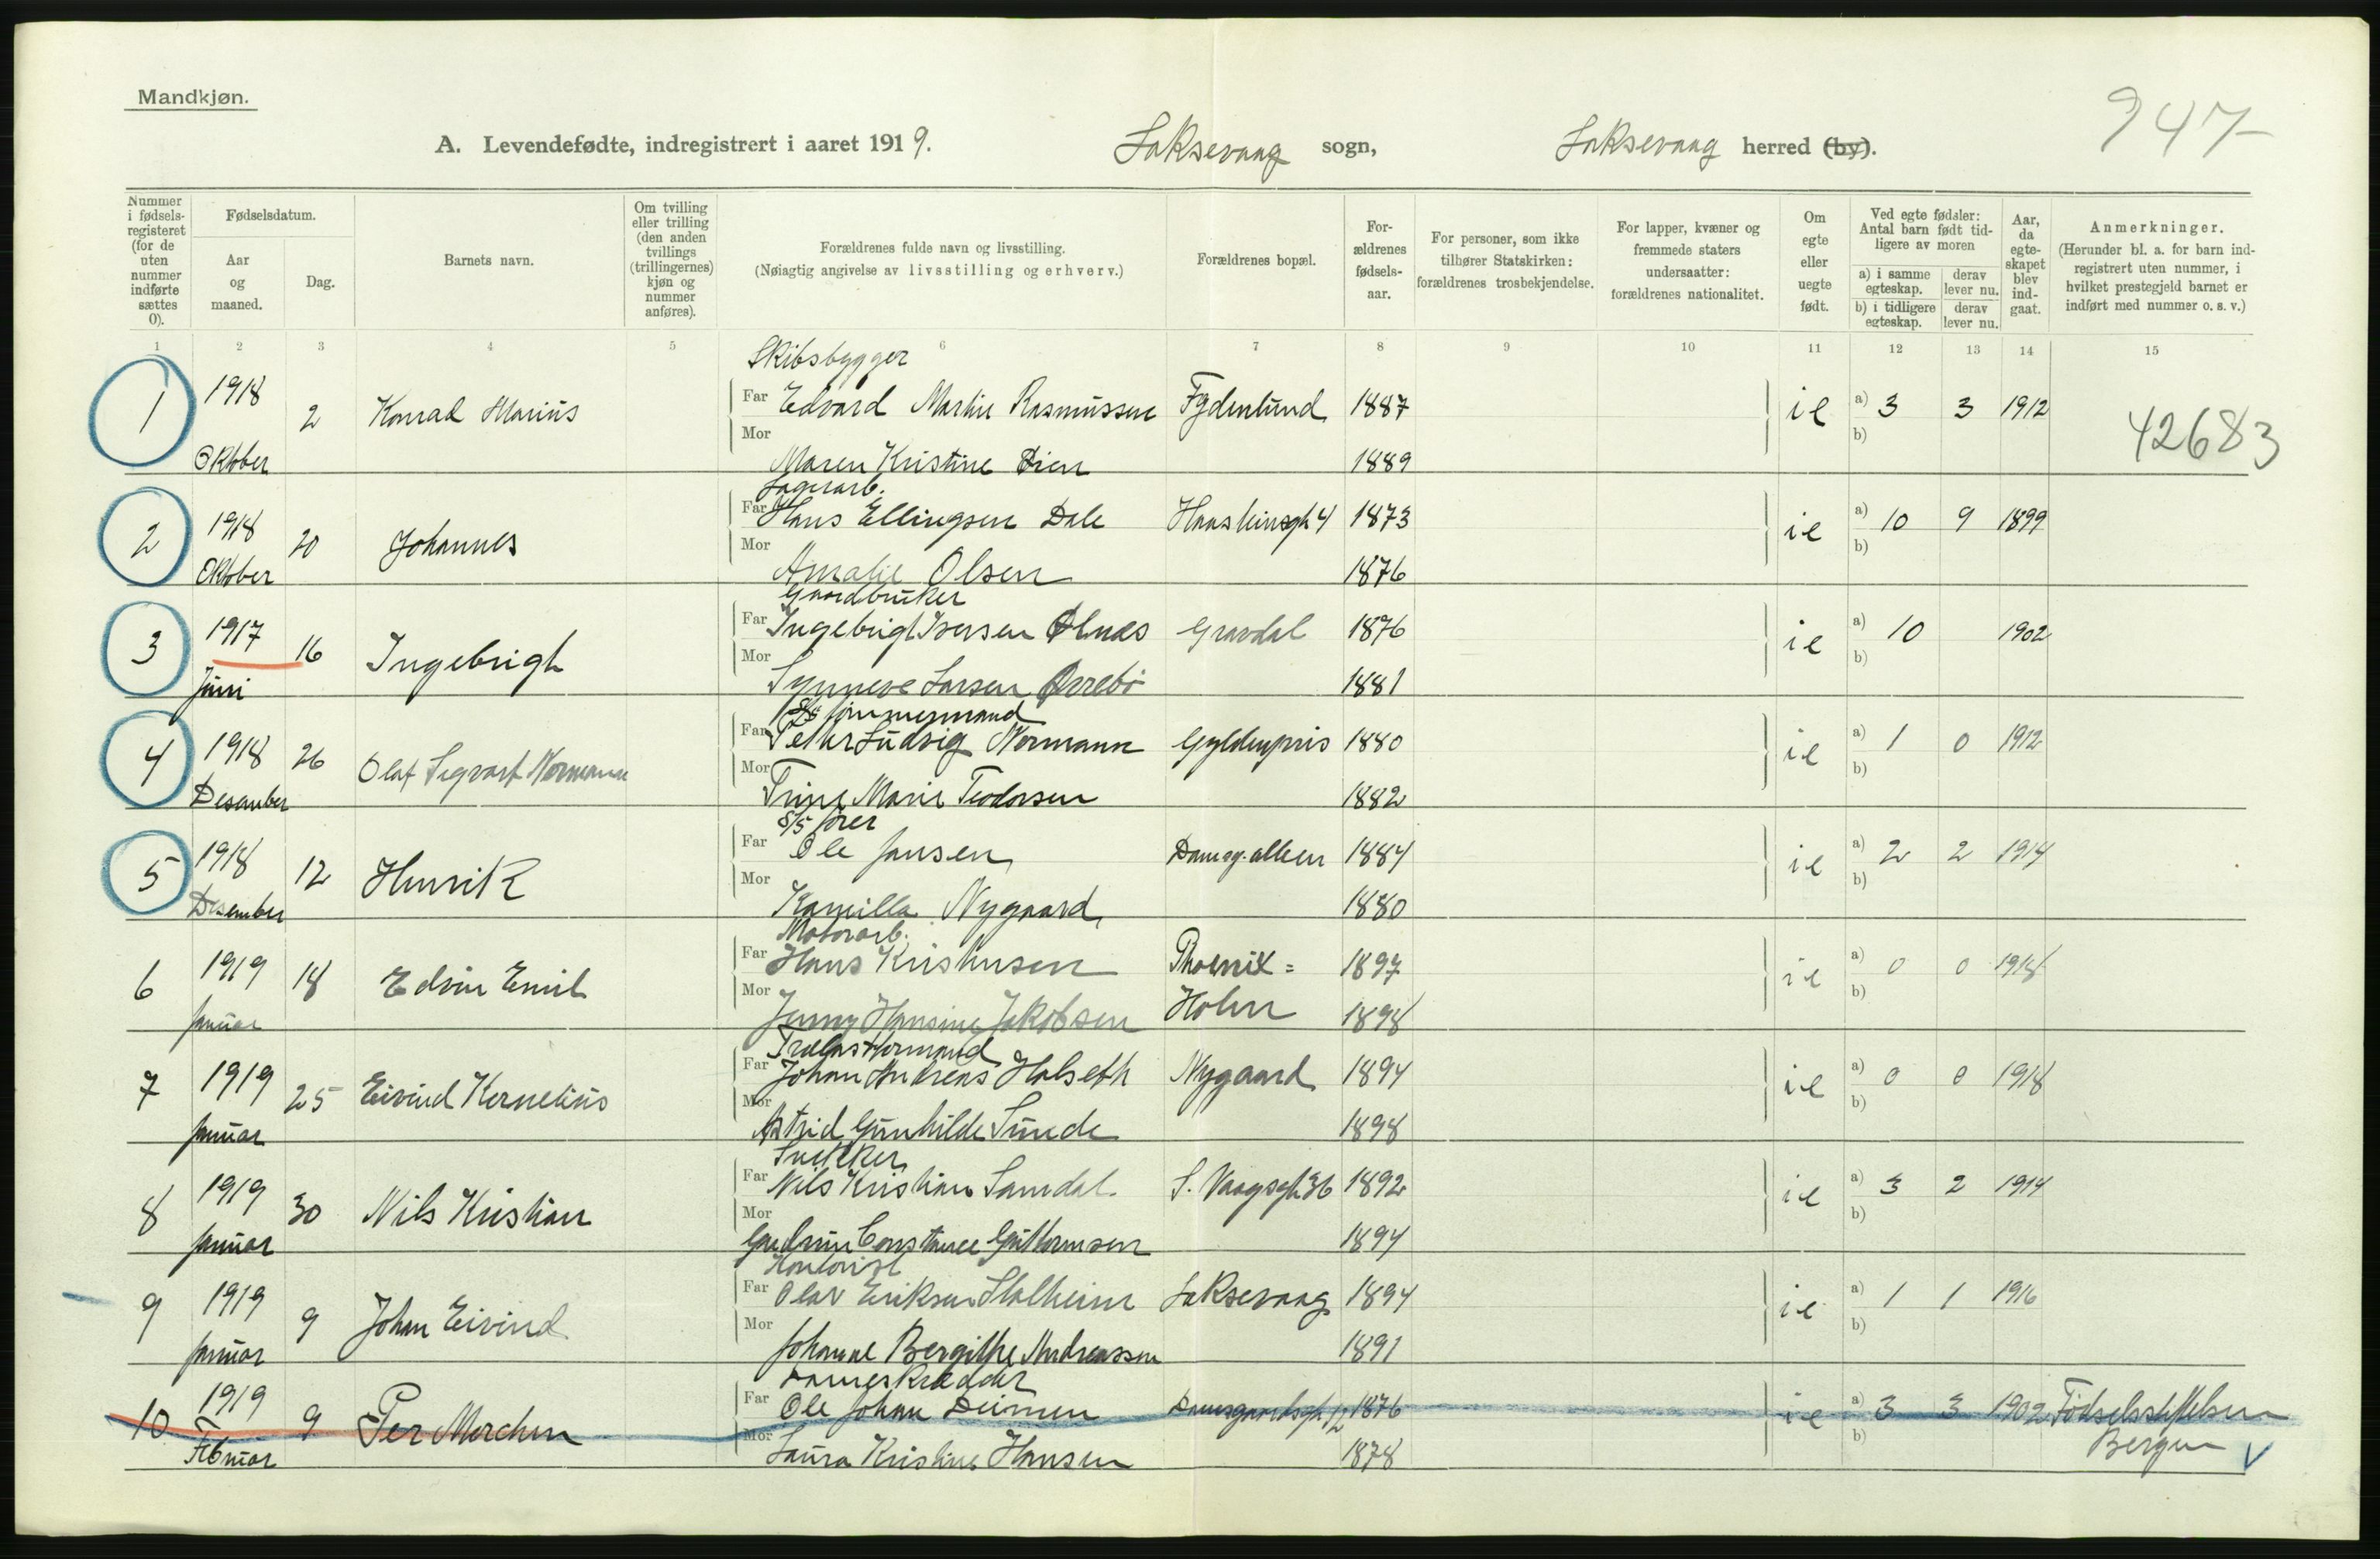 Mandkjøn.
A. Levendefødte, indregistrert i aaret 1919. Laksevaag sogn, Laksevaag herred (by).
947
Nummer i fødsels-registeret (for de uten nummer indførte sættes 0).
Fødselsdatum.
Aar og maaned.
Dag.
Barnets navn.
Om tvilling eller trilling (den anden tvillings (trillingernes) kjøn og nummer anføres).
Forældrenes fulde navn og livsstilling.
(Nøiagtig angivelse av livsstilling og erhverv.)
Forældrenes bopæl.
For-ældrenes fødsels-aar.
For personer, som ikke tilhører Statskirken: forældrenes trosbekjendelse.
For lapper, kvæner og fremmede staters undersaatter: forældrenes nationalitet.
Om egte eller uegte født.
Ved egte fødsler: Antal barn født tid-ligere av moren
a) i samme egteskap.
derav lever nu.
b) i tidligere egteskap.
derav lever nu.
Aar, da egte-skapet blev ind-gaat.
Anmerkninger.
(Herunder bl. a. for barn ind-registrert uten nummer, i hvilket prestegjeld barnet er indført med nummer o. s. v.)
1 2 3 4 5 6 7 8 9 10 11 12 13 14 15
Skibsbygger
1 1918 Oktober 2 Konrad Marius Far Edvard Martin Rasmussen Fydenlund 1887 ie a) 3 3 1912 42683
b)
Mor Maren Kristine Øien 1889
Lagerarb.
2 1918 Oktober 20 Johannes Far Hans Ellingsen Dale 4 1873 ie a) 10 9 1899
b)
Mor Amalie Olsen 1876
Gaardbruker
3 1917 Juni 16 Ingebrigt Far Ingebrigt Iversen Ølnes Gravdal 1876 ie a) 10 1902
b)
Mor Synneve Larsen Orrebö 1881
tömmermand
4 1918 Desember 26 Olaf Sigvart Normann Far Peder Ludvig Normann Gyldenpris 1880 ie a) 1 0 1912
b)
Mor Trine Marie Teodorsen 1882
S/S förer
5 1918 Desember 12 Henrik Far Ole Jansen Damsg. alleen 1884 ie a) 2 2 1914
b)
Mor Kamilla Nygaard 1880
Motorarb.
6 1919 Januar 18 Edvin Emil Far Hans Kristensen Phoenix= 1897 ie a) 0 0 1918
b)
Mor Jenny Hansine Jakobsen Holm 1898
Trælastformand
7 1919 Januar 25 Eivind Kornelius Far Johan Andreas Halseth Nygaard 1894 ie a) 0 0 1918
b)
Mor Astrid Gunhilde Sunde 1898
Snekker
8 1919 Januar 30 Nils Kristian Far Nils Kristian Samdal S. Vaagsgt. 36 1892 ie a) 3 2 1914
b)
Mor Gudrun Constance Guttormsen 1894
Kontorist
9 1919 Januar 9 Johan Eivind Far Olav Eriksen Stalheim Laksevaag 1894 ie a) 1 1 1916
b)
Mor Johanne Bergithe Andreassen 1891
Dameskrædder
10 1919 Februar 9 Per Merchen Far Ole Johan Deimen Damsgaardsgt. 12 1876 ie a) 3 3 1902 Födselsstiftelsen
b) Bergen
Mor Laura Kristine Hansen 1878